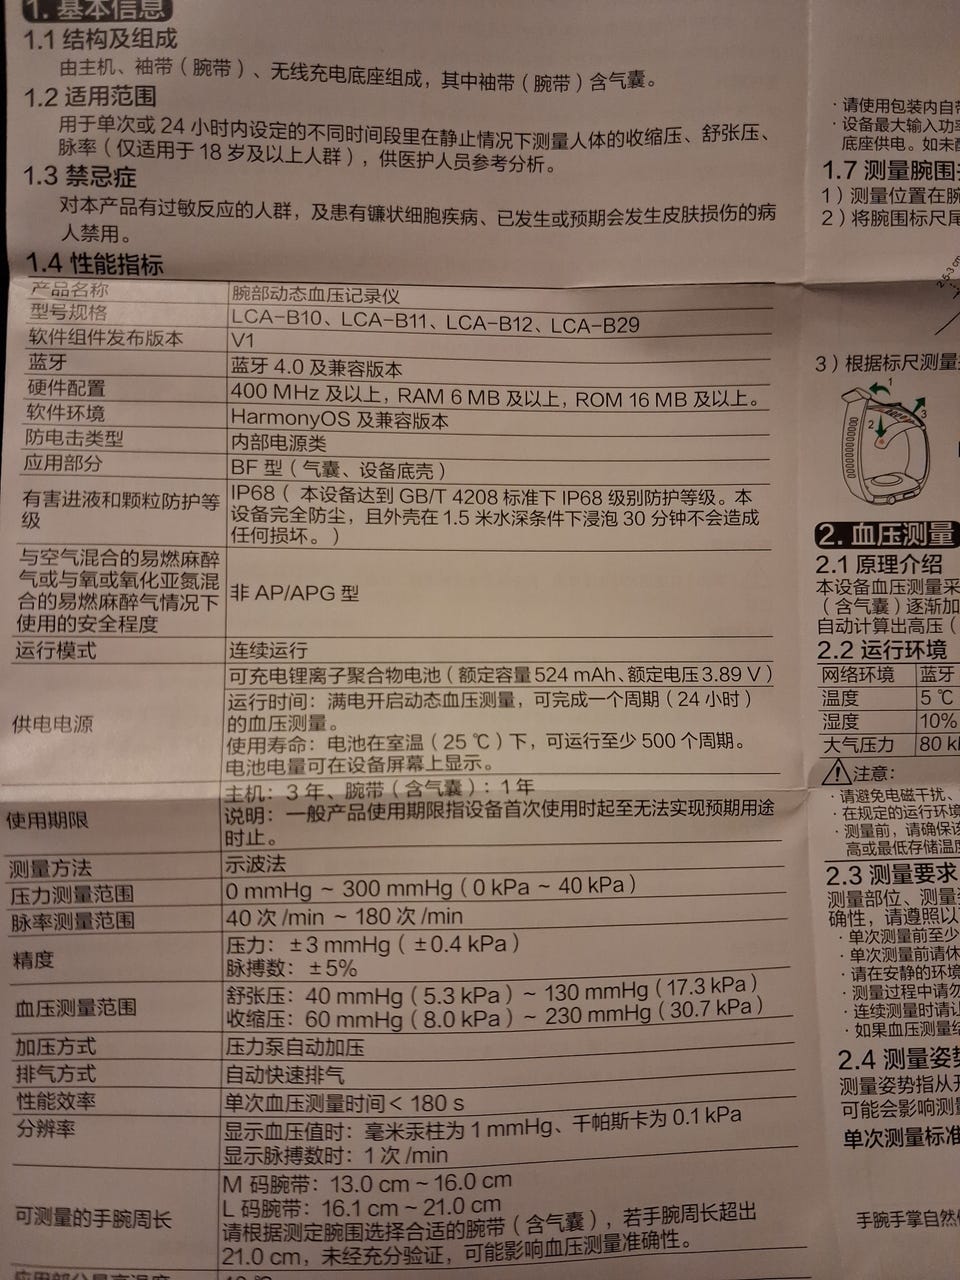 1. 基本信息
1.1 结构及组成
由主机、袖带（腕带）、无线充电底座组成，其中袖带（腕带）含气囊。
1.2 适用范围
用于单次或 24 小时内设定的不同时间段里在静止情况下测量人体的收缩压、舒张压、
脉率（仅适用于 18 岁及以上人群），供医护人员参考分析。
1.3 禁忌症
对本产品有过敏反应的人群，及患有镰状细胞疾病、已发生或预期会发生皮肤损伤的病
人禁用。
1.4 性能指标
产品名称 腕部动态血压记录仪
型号规格 LCA-B10、LCA-B11、LCA-B12、LCA-B29
软件组件发布版本 V1
蓝牙 蓝牙 4.0 及兼容版本
硬件配置 400 MHz 及以上，RAM 6 MB 及以上，ROM 16 MB 及以上。
软件环境 HarmonyOS 及兼容版本
防电击类型 内部电源类
应用部分 BF 型（气囊、设备底壳）
有害进液和颗粒防护等
级
IP68（ 本设备达到 GB/T 4208 标准下 IP68 级别防护等级。本
设备完全防尘，且外壳在 1.5 米水深条件下浸泡 30 分钟不会造成
任何损坏。）
与空气混合的易燃麻醉
气或与氧或氧化亚氮混
合的易燃麻醉气情况下
使用的安全程度
非 AP/APG 型
运行模式 连续运行
供电电源
可充电锂离子聚合物电池（额定容量 524 mAh、额定电压 3.89 V）
运行时间：满电开启动态血压测量，可完成一个周期（24 小时）
的血压测量。
使用寿命：电池在室温（25 ℃）下，可运行至少 500 个周期。
电池电量可在设备屏幕上显示。
使用期限
主机：3 年、腕带（含气囊）：1 年
说明：一般产品使用期限指设备首次使用时起至无法实现预期用途
时止。
测量方法 示波法
压力测量范围 0 mmHg ~ 300 mmHg（0 kPa ~ 40 kPa）
脉率测量范围 40 次 /min ~ 180 次 /min
精度
压力：±3 mmHg（±0.4 kPa）
脉搏数：±5%
血压测量范围
舒张压：40 mmHg（5.3 kPa）~ 130 mmHg（17.3 kPa）
收缩压：60 mmHg（8.0 kPa）~ 230 mmHg（30.7 kPa）
加压方式 压力泵自动加压
排气方式 自动快速排气
性能效率 单次血压测量时间< 180 s
分辨率
显示血压值时：毫米汞柱为 1 mmHg、千帕斯卡为 0.1 kPa
显示脉搏数时：1 次 /min
可测量的手腕周长
M 码腕带：13.0 cm ~ 16.0 cm
L 码腕带：16.1 cm ~ 21.0 cm
请根据测定腕围选择合适的腕带（含气囊），若手腕周长超出
21.0 cm，未经充分验证，可能影响血压测量准确性。
· 请使用包装内自
· 设备最大输入功
底座供电。如未
1.7 测量腕围
1）测量位置在腕
2）将腕围标尺尾
3）根据标尺测量
1
2
3
2. 血压测量
2.1 原理介绍
本设备血压测量采
（含气囊）逐渐加
自动计算出高压（
2.2 运行环境
网络环境 蓝牙
温度 5 ℃
湿度 10%
大气压力 80 k
注意：
· 请避免电磁干扰、
· 在规定的运行环境
· 测量前，请确保
高或最低存储温度
2.3 测量要求
测量部位、测量
确性，请遵照以
· 单次测量前至少
· 单次测量前请休
· 请在安静的环境
· 测量过程中请勿
· 连续测量时请让
· 如果血压测量结
2.4 测量姿势
测量姿势指从开
可能会影响测量
单次测量标准
手腕手掌自然